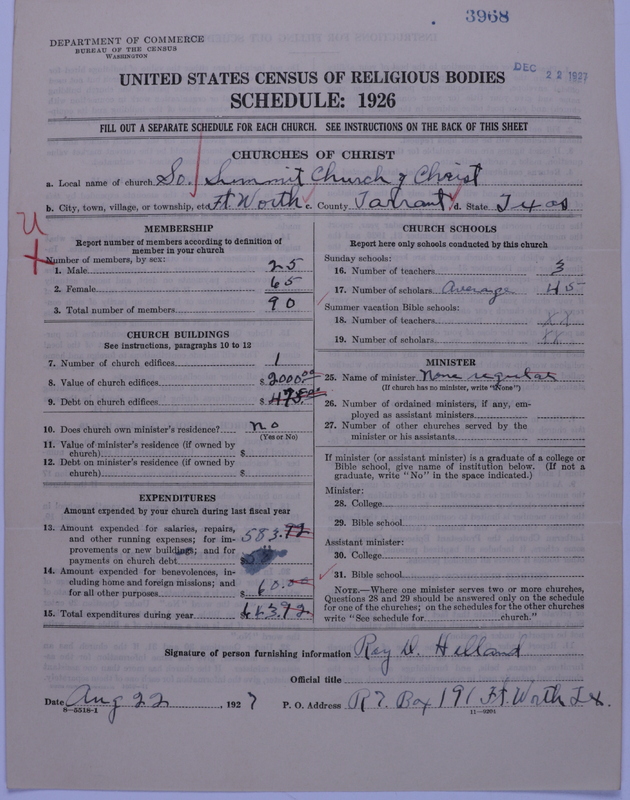 3968
DEPARTMENT OF COMMERCE
BUREAU OF THE CENSUS
WASHINGTON
DEC 22 1927
UNITED STATES CENSUS OF RELIGIOUS BODIES
SCHEDULE: 1926
FILL OUT A SEPARATE SCHEDULE FOR EACH CHURCH. SEE INSTRUCTIONS ON THE BACK OF THIS SHEET
CHURCHES OF CHRIST
a. Local name of church So. Summit Church of Christ
b. City, town, village, or township, etc Ft Worth c. County Tarrant d. State Texas
U
MEMBERSHIP
Report number of members according to definition of
member in your church
Number of members, by sex:
1. Male 25
2. Female 65
3. Total number of members 90
CHURCH BUILDINGS
See instructions, paragraphs 10 to 12
7. Number of church edifices 1
8. Value of church edifices $ 2000.00
9. Debt on church edifices $ 475.00
10. Does church own minister's residence? no
(Yes or No)
11. Value of minister's residence (if owned by
church) $
12. Debt on minister's residence (if owned by
church) $
EXPENDITURES
Amount expended by your church during last fiscal year
13. Amount expended for salaries, repairs,
and other running expenses; for im-
provements or new buildings; and for
payments on church debt 583.72
14. Amount expended for benevolences, in-
cluding home and foreign missions; and
for all other purposes $ 60.00
15. Total expenditures during year 643.72
CHURCH SCHOOLS
Report here only schools conducted by this church
Sunday schools:
16. Number of teachers 3
17. Number of scholars Average 45
Summer vacation Bible schools:
18. Number of teachers XX
19. Number of scholars XX
MINISTER
25. Name of minister None regular
(If church has no minister, write "None")
26. Number of ordained ministers, if any, em-
ployed as assistant ministers
27. Number of other churches served by the
minister or his assistants
If minister (or assistant minister) is a graduate of a college or
Bible school, give name of institution below. (If not a
graduate, write "No" in the space indicated.)
Minister:
28. College
29. Bible school
Assistant minister:
30. College
31. Bible school
NOTE.—Where one minister serves two or more churches,
Questions 28 and 29 should be answered only on the schedule
for one of the churches; on the schedules for the other churches
write "See schedule for church."
Signature of person furnishing information Roy D. Helland
Official title
Date Aug 22, 1927 P. O. Address R 7. Box 191 Ft. Worth Tx.
8—5518-1 11—9204